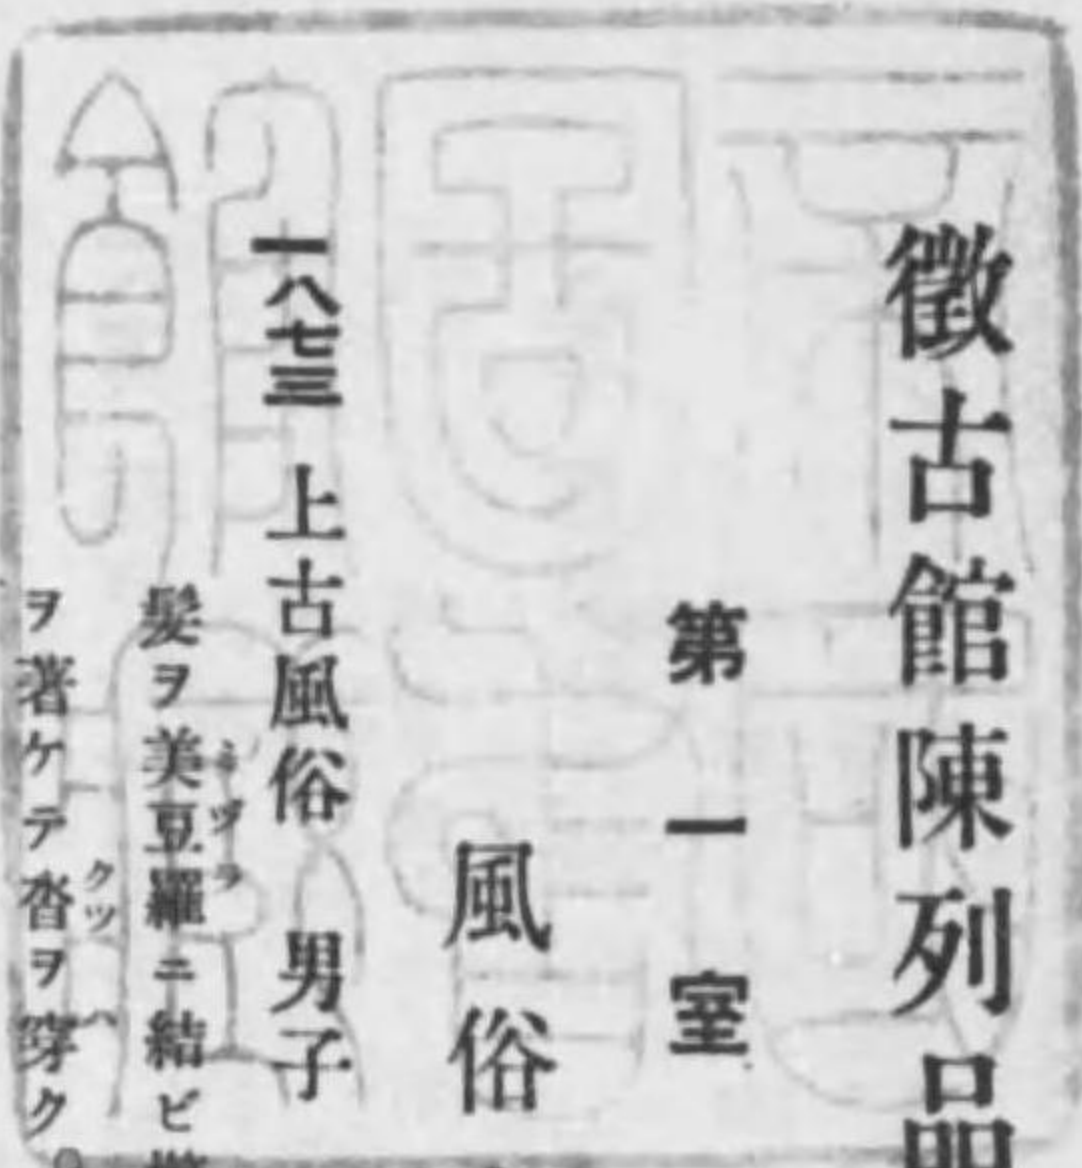 徵古館陳列品
第一室
風俗
一八七三 上古風俗 男子
髮ヲ美豆羅ニ結ビ
ミヅラ
ヲ著ケテ沓ヲ穿ク。
クツ ハ